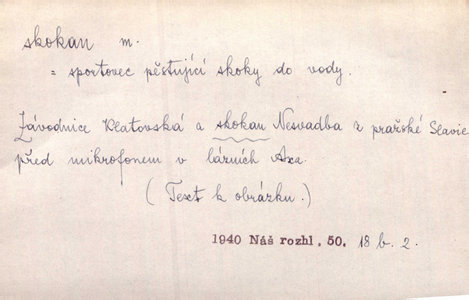 skokan m.
= sportovec pěstující skoky do vody.
Závodnice Klatovská a skokan Nesvadba z pražské Slavie
před mikrofonem v lázních Axa.
(Text k obrázku.)
1940 Náš rozhl. 50. 18 b. 2.